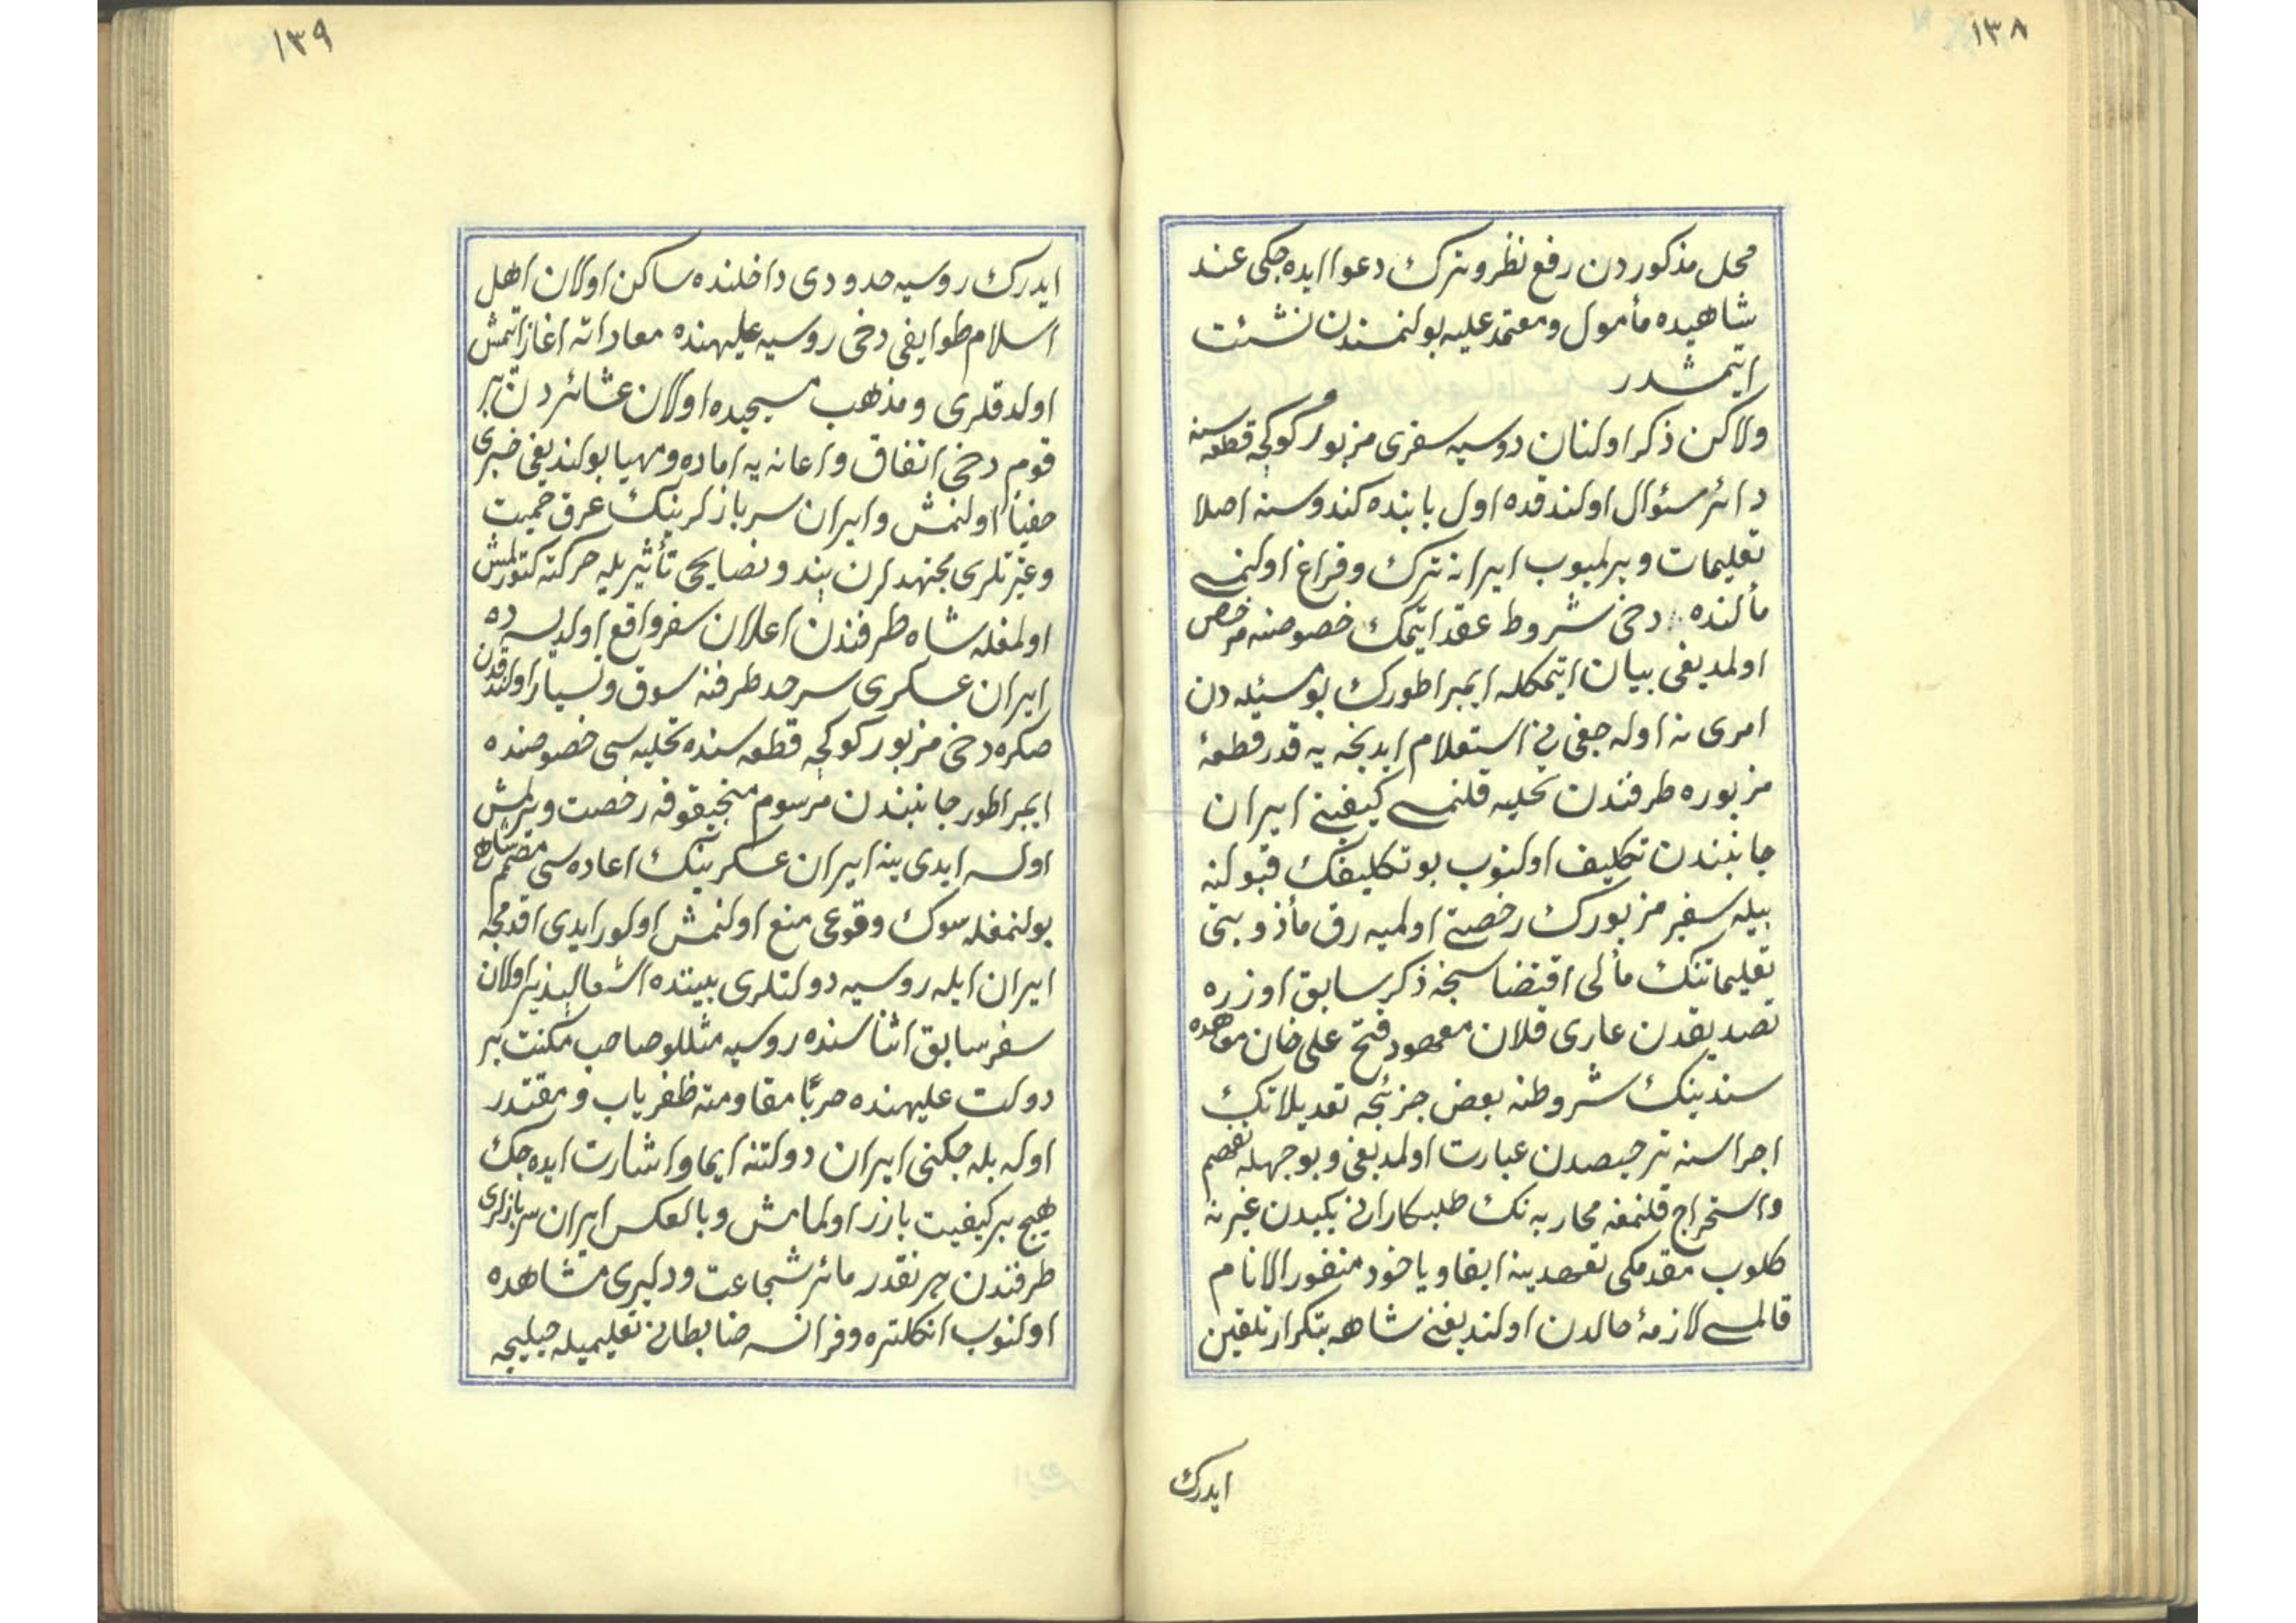 ١٣٨
محل مذكوردن رفع نظر و ترك دعوا ايده جكى عند
شاهيده مأمول و معتمد عليه بولنمسندن نشئت
ايتمشدر
ولاكن ذكر اولنان روسيه سفرى مزبور كوكجه قطعه سنه
دائر سئوال اولندقده اول بابنده كندوسنه اصلا
تعليمات ويرلميوب ايرانه ترك و فراغ اولنمسى
مألنده دخى شروط عقد ايتمك خصوصنه مرخص
اولمديغى بيان ايتمكله ايمبراطورك بومسئله دن
امرى نه اوله جغنى استعلام ايدنجه يه قدر قطعهٔ
مزبوره طرفندن تخليه قلنمسى كيفيتى ايران
جانبندن تكليف اولنوب بو تكليفك قبولنه
بيله سفير مزبورك رخصتى اولميه رق مأذونيتى
تعليماتنك مألى اقتضاسنجه ذكر سابق اوزره
تصديقدن عارى قلان معهود فتح على خان معاهده
سندينك شروطنه بعض جزئيجه تعديلاتك
اجراسنه ترخيصدن عبارت اولمديغى و بوجهله تفهم
و استخراج قلنمغه محاربه نك طلبكارانى يكيدن غيرته
كلوب مقدمكى تعهدينه ايفا و ياخود منفور الانام
قالمسى لازمهٔ حالدن اولنديغنى شاهه بتكرار تلقين
ايدرك
١٣٩
ايدرك روسيه حدودى داخلنده ساكن اولان اهل
اسلام طوايفى دخى روسيه عليهنده معاداته اغاز ايتمش
اولدقلرى و مذهب مسيحيده اولان عشائردن بر
قوم دخى اتفاق و اعانه يه اماده و مهيا بولنديغى خبرى
خفياً اولنمش و ايران سربازلرينك عرق حميت
و غيرتلرى مجتهدلرن پند و نصايحى تأثيريله حركته كتورلمش
اولمغله شاه طرفندن اعلان سفر واقع اولديسه ده
ايران عسكرى سرحد طرفنه سوق و تسيار اولندقدن
صكره دخى مزبور كوكجه قطعه سنده تخليه سى خصوصنده
ايمبراطور جانبندن مرسوم منچيقوفه رخصت ويرلمش
اولسه ايدى ينه ايران عسكرينك اعاده سى مصمم شاهى
بولنمغله سوك وقوعى منع اولنمش اولور ايدى اقدمجه
ايران ايله روسيه دولتلرى بيننده اشعالپذير اولان
سفر سابق اثناسنده روسيه مثللو صاحب مكنت بر
دولت عليهنده حرباً مقاومته ظفرياب و مقتدر
اوله بله جكنى ايران دولتنه ايما و اشارت ايده جك
هيچ بر كيفيت بارز اولمامش و بالعكس ايران سربازلرى
طرفندن هر نقدر مأثر شجاعت و دليرى مشاهده
اولنوب انكلتره و فرانسه ضابطانى تعليميله جليجه